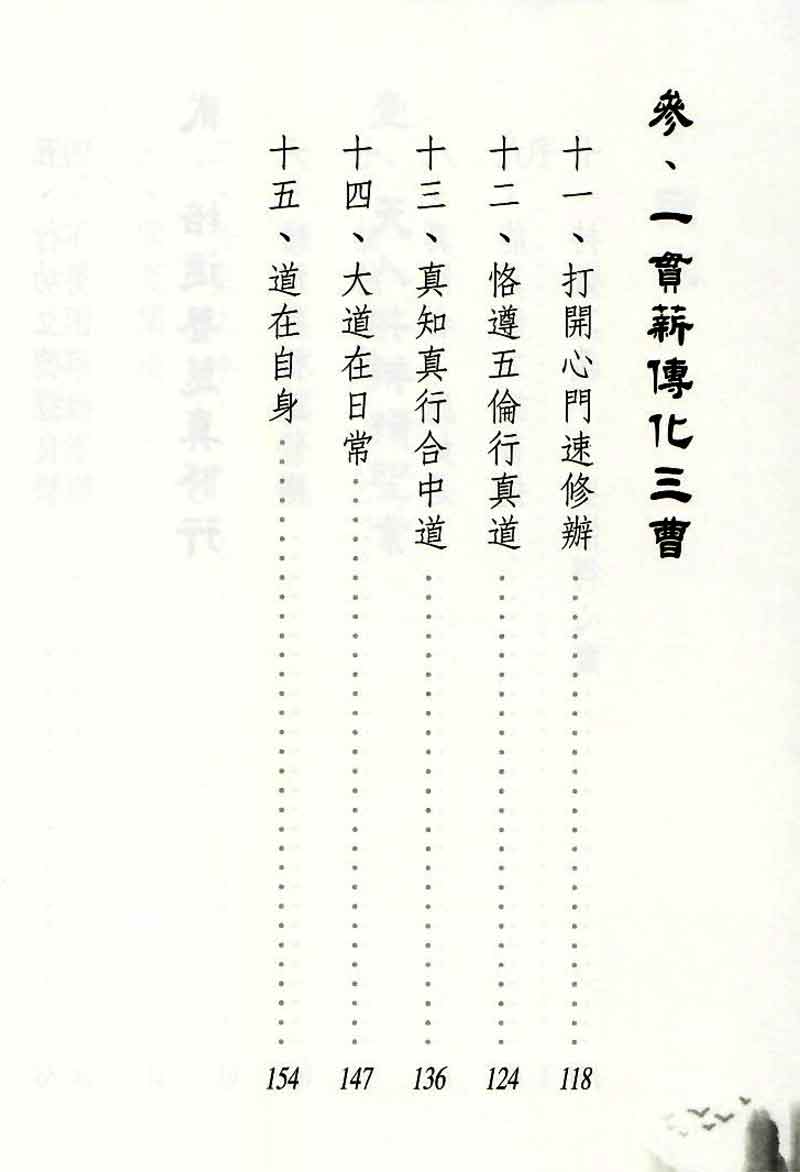 參、一貫薪傳化三曹
十一、打開心門速修辦 118
十二、恪遵五倫行真道 124
十三、真知真行合中道 136
十四、大道在日常 147
十五、道在自身 154